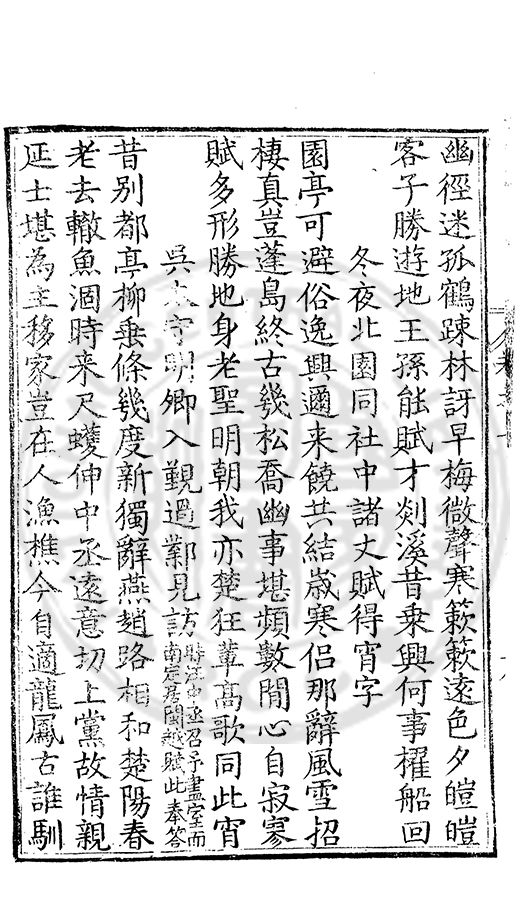 幽徑迷孤鶴踈林訝早梅微聲寒簌簌遠色夕皚皚
客子勝遊地王孫能賦才剡溪昔乗興何事櫂船回
冬夜北園同社中諸丈賦得宵字
園亭可避俗逸興邇来饒共結歳寒侣那辭風雪招
棲真豈蓬島終古幾松喬幽事堪頻數閒心自寂寥
賦多形勝地身老聖明朝我亦楚狂輩高歌同此宵
吳太守明卿入覲過鄴見訪時汪中丞召予盡室而南定居閩越賦此奉答
昔别都亭柳垂條幾度新獨辭燕趙路相和楚陽春
老去轍魚涸時来尺蠖伸中丞遠意切上黨故情親
延士堪為主移家豈在人漁樵今自適龍鳳古誰馴